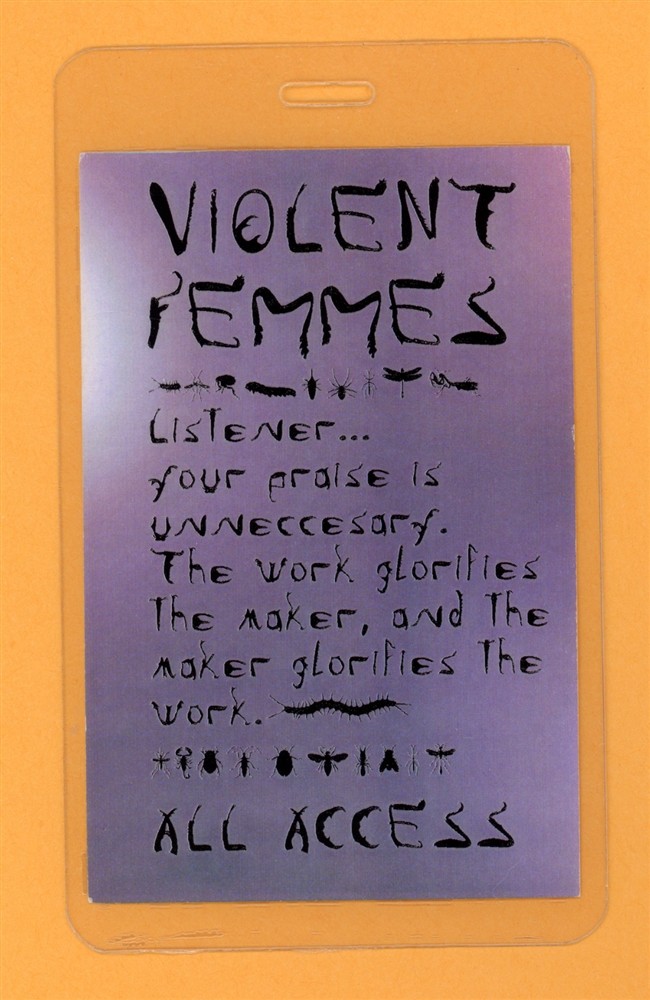 VIOLENT
FEMMES
Listener...
your praise is
unneccesary.
The work glorifies
the maker, and the
maker glorifies the
work.
ALL ACCESS